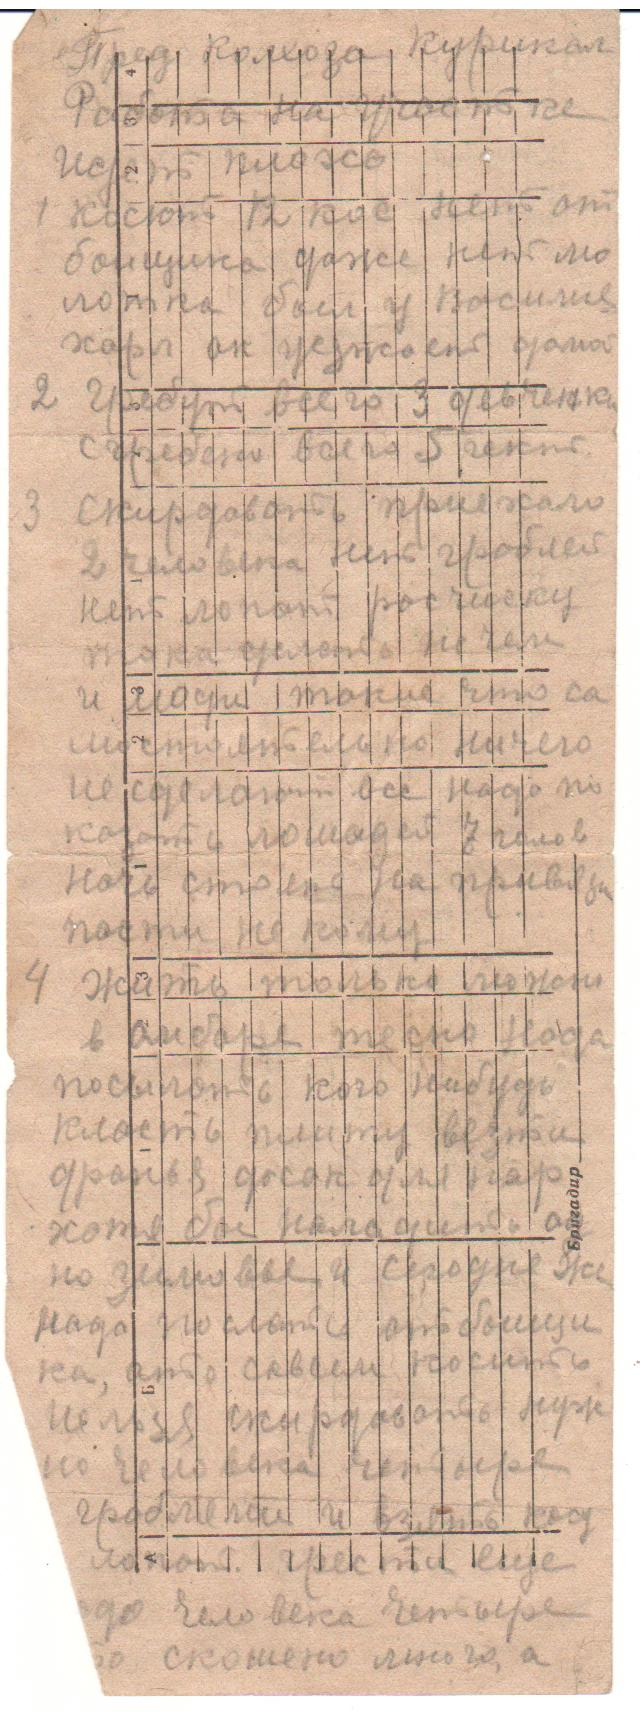 Пред Колхоза Курикал
Работы на участке
идет плохо
1 косют 12 кос нет от
боищика даже нет мо
лотка был у Василия
хары он уезжает домой
2 Гребут всего 3 девченки
сгребено всего 5 гект.
3 Скирдавать приехало
2 человека нет граблей
нет лопат расчиску
тока делать не чем
и люди такие что са
мостоятельно ничего
не сделают все надо по
казать лошадей 7 голов
ночь стояле на привязи
пости не кому
4 Жить только можно
в амбаре тесно Нада
посылать кого нибудь
класть плиту везти
досак для нар
хотя бы наладить од
но зимовье и сегодне же
надо послать отбоищи
ка, ато савсем косить
нельзя скирдовать нуж
но человека четыре
граблями и взять
лопат. грести еще
адо человека четыре
бо скошено много, а
Бригадир
А Б 1 2 3 1 2 3 1 2 3 1 2 3 4